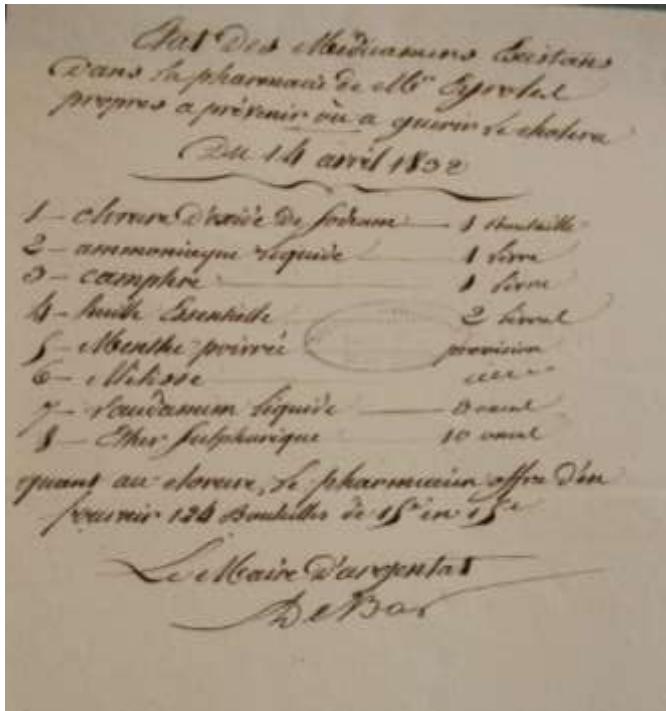 Etat Des Médicamens Existans
Dans la pharmacie de Mr Eyrolles
propres a prévenir ou a guérir le cholera
Du 14 avril 1832
1 – clorure d'oxide de sodium — 1 Bouteille
2 – ammoniaque liquide — 1 livre
3 – camphre — 1 livre
4 – huille Essentielle — 2 livres
5 – Menthe poivrée — provision
6 – Mélisse —
7 – Laudanum liquide — 8 onces
8 – Ether sulphurique — 10 onces
quant au clorure, le pharmacien offre d'en
fournir 124 Bouteilles de 15e en 15e
Le Maire D'argentat
DeBar